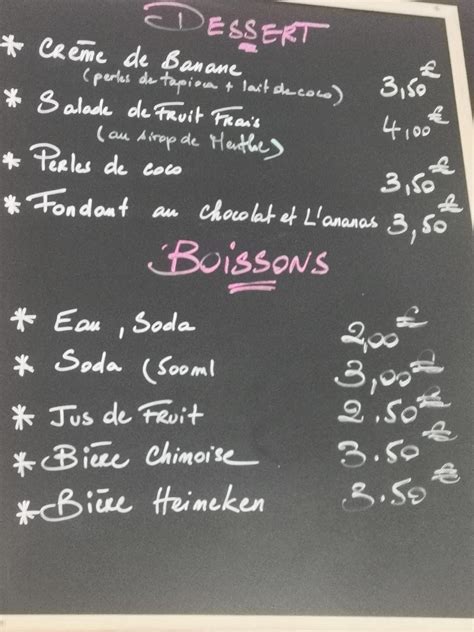 DESSERT
* Crème de Banane
(perles de tapioca + lait de coco) 3,50€
* Salade de Fruit Frais 4,00€
(au sirop de Menthe)
* Perles de coco 3,50€
* Fondant au chocolat et L'ananas 3,50€
BOISSONS
* Eau, Soda 2,00€
* Soda (500ml 3,00€
* Jus de Fruit 2.50€
* Bière Chinoise 3.50€
* Bière Heineken 3.50€